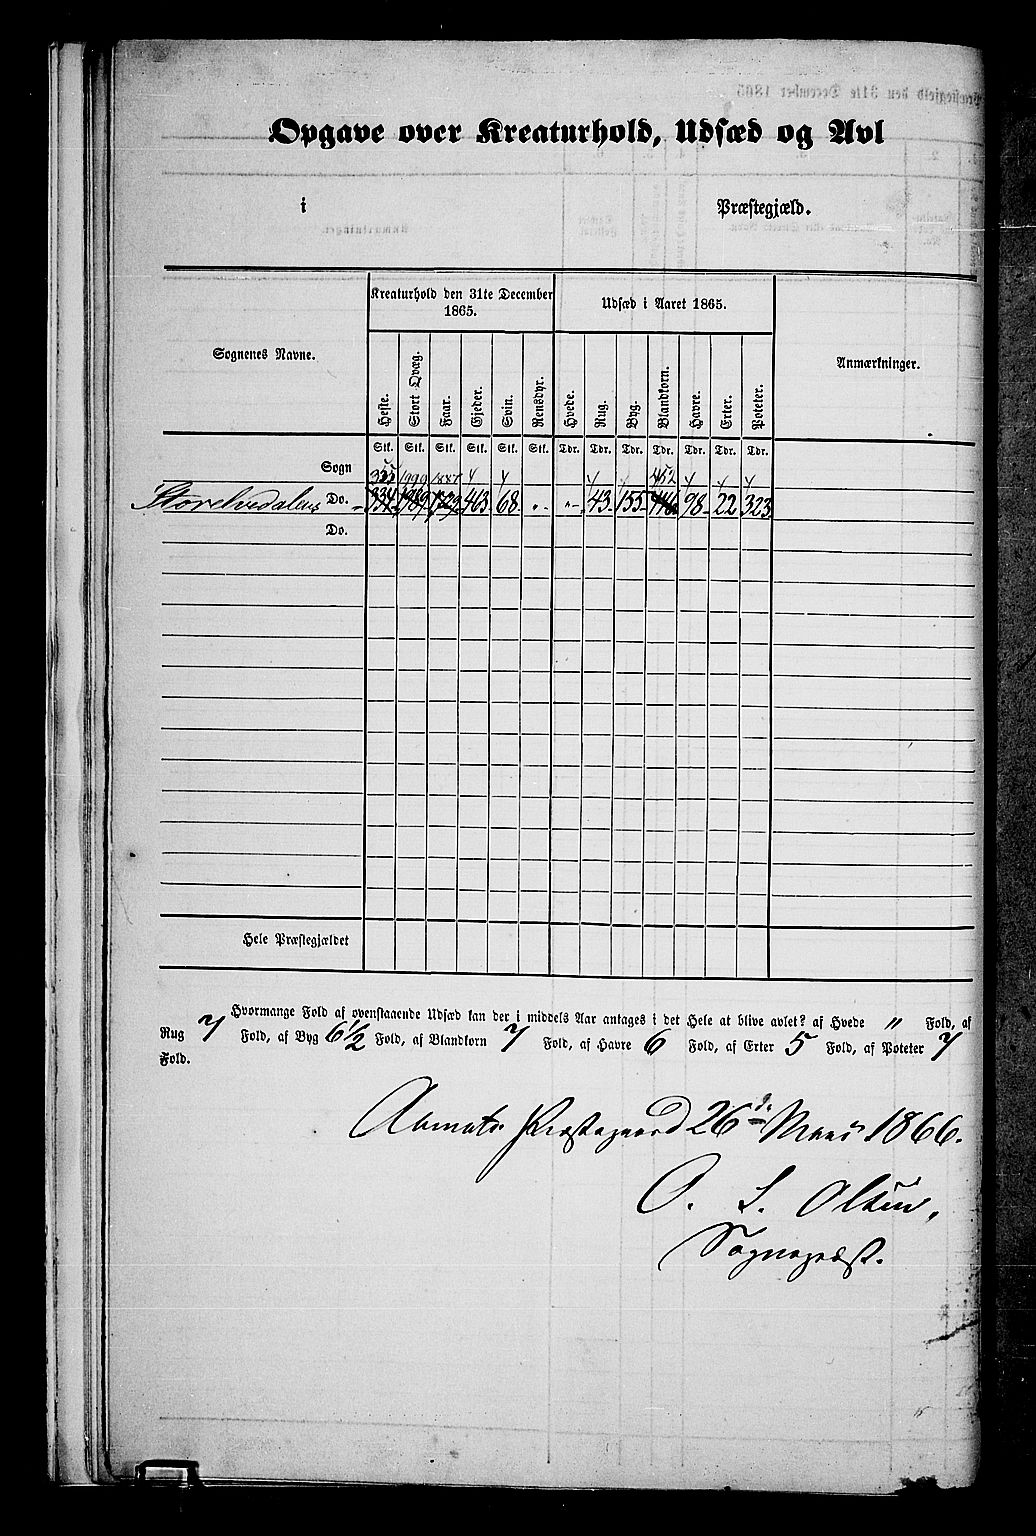 Opgave over Kreaturhold, Udsæd og Avl
i Præstegjæld.
Sognenes Navne. Kreaturhold den 31te December 1865. Udsæd i Aaret 1865. Anmærkninger.
Heste. Stort Qvæg. Faar. Gjeder. Svin. Rensdyr. Hvede. Rug. Byg. Blandkorn. Havre. Erter. Poteter.
Stk. Stk. Stk. Stk. Stk. Stk. Tdr. Tdr. Tdr. Tdr. Tdr. Tdr. Tdr.
Sogn 335 1999 1887 452
Storelvedalens Do. 334 1989 463 68 " " 43 155 446 98 22 323
Do.
Hele Præstegjældet
Hvormange Fold af ovenstaaende Udsæd kan der i middels Aar antages i det Hele at blive avlet? af Hvede " Fold, af
Rug 7 Fold, af Byg 6½ Fold, af Blandkorn 7 Fold, af Havre 6 Fold, af Erter 5 Fold, af Poteter 7
Fold.
Aamots Præstegaard 26de Marts 1866.
O. S. Olsen,
Sognepræst.